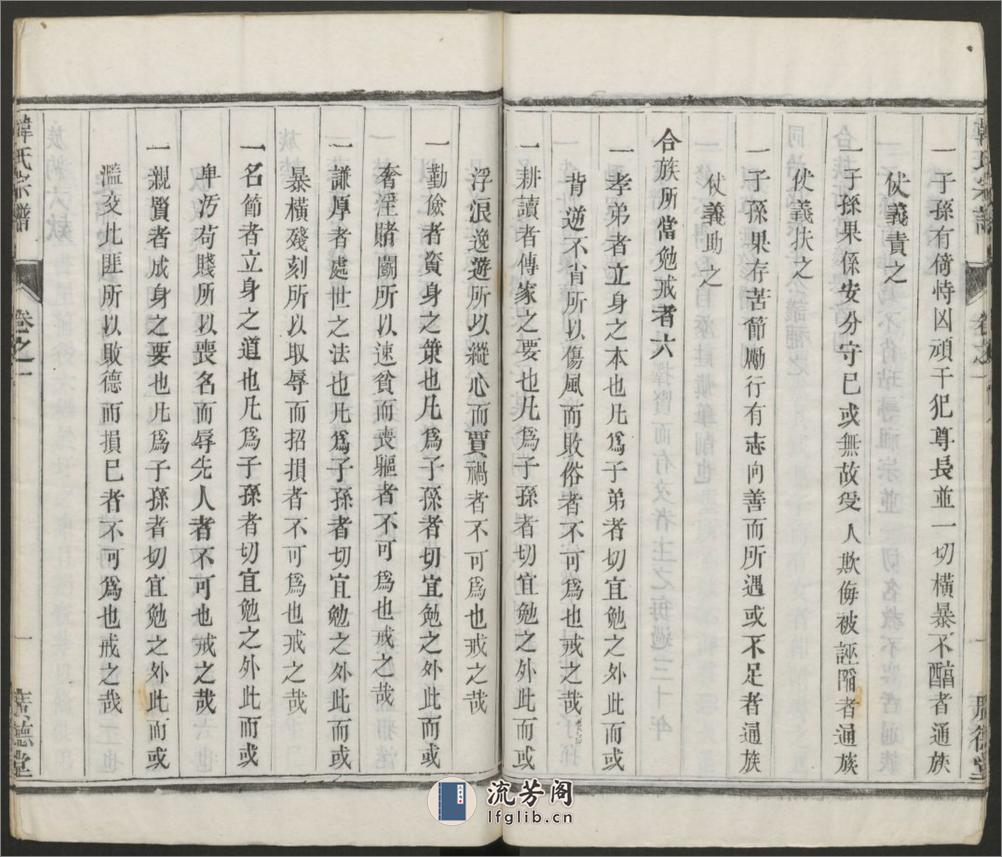 一子孫有倚恃凶頑干犯尊長並一切橫暴不醕者通族
仗義責之
一子孫果係安分守己或無故受人欺侮被誣陷者通族
仗義扶之
一子孫果存苦節勵行有志向善而所遇或不足者通族
仗義助之
合族所當勉戒者六
一孝弟者立身之本也凡為子弟者切宜勉之外此而或
背逆不肖所以傷風而敗俗者不可為也戒之哉
一耕讀者傳家之要也凡為子孫者切宜勉之外此而或
浮浪逸遊所以縱心而賈禍者不可為也戒之哉
一勤儉者資身之策也凡為子孫者切宜勉之外此而或
奢淫賭鬬所以速貧而喪軀者不可為也戒之哉
一謙厚者處世之法也凡為子孫者切宜勉之外此而或
暴橫殘刻所以取辱而招損者不可為也戒之哉
一名節者立身之道也凡為子孫者切宜勉之外此而或
卑汚苟賤所以喪名而辱先人者不可也戒之哉
一親賢者成身之要也凡為子孫者切宜勉之外此而或
濫交比匪所以敗德而損己者不可為也戒之哉
韓氏宗譜 卷之一 一 廣德堂
流芳阁
lfglib.cn